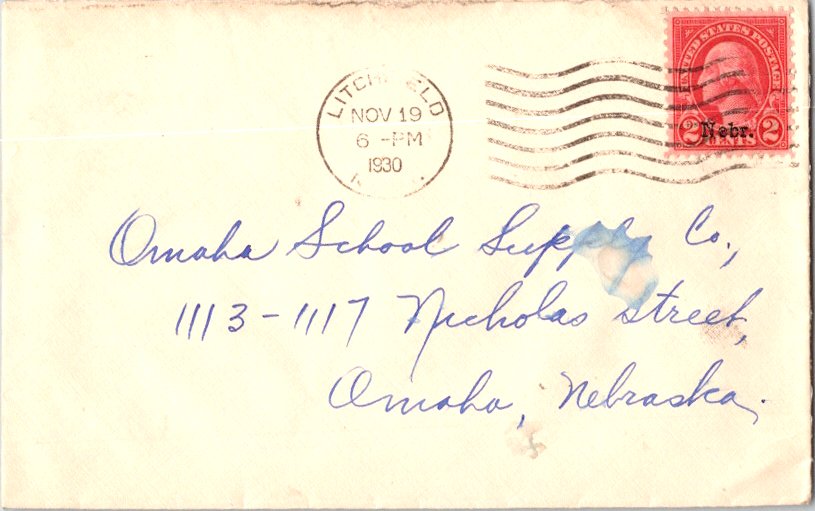 UNITED STATES POSTAGE
LITCHFIELD
NOV 19
6 -PM
1930
2 Nebr. 2
CENTS
Omaha School Supply Co.,
1113-1117 Nicholas Street,
Omaha, Nebraska.